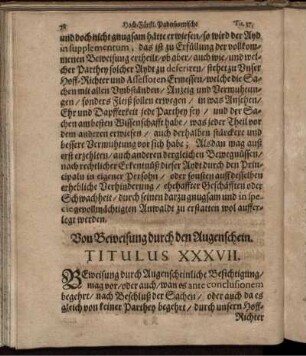 38 Hochfürstl. Paderbornische Tit. 37.
und doch nicht gnugsam hätte erwiesen / so wird der Ayd
in supplementum, das ist zu Erfüllung der vollkom-
menen Beweisung ertheilt / ob aber / auch wie / und wel-
cher Parthey solcher Aydt zu deferiren / stehet zu Unser
Hoff-Richter und Assessoren Ermessen / welche die Sa-
chen mit allen Umbständen / Anzeig und Vermuhtun-
gen / sonders Fleiß sollen erwegen / in was Ansehen /
Ehr und Dapfferkeit jede Parthey sey / und der Sa-
chen am besten Wissenschafft habe / was jeder Theil vor
dem anderen erwiesen / auch derhalben stärckere und
bessere Vermuhtung vor sich habe; Alsdan mag auß
erst erzehlten / auch anderen dergleichen Bewegnüssen /
nach rechtlicher Erkentnüß dieser Aydt durch den Princi-
paln in eigener Persohn / oder sonsten auß desselben
erhebliche Verhinderung / ehehaffter Geschäfften oder
Schwachheit / durch seinen darzu gnugsam und in spe-
cie gevollmächtigten Anwaldt zu erstatten wol auffer-
legt werden.
Von Beweisung durch den Augenschein.
TITULUS XXXVII.
BEweisung durch Augenscheinliche Besichtigung /
mag vor / oder auch / wan es ante conclusionem
begehrt / nach Beschluß der Sachen / oder auch da es
gleich von keiner Parthey begehrt / durch unsern Hoff-
Richter